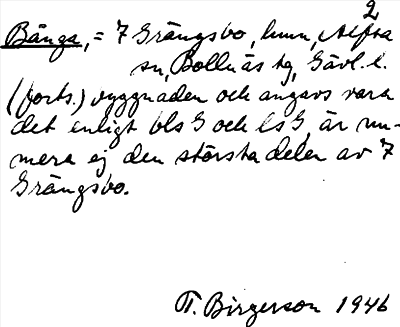 2
Bänga, = 7 Grängsbo, hmn, Alfta
sn, Bollnäs tg, Gävl. l.
(forts.) byggnaden och angavs vara
det enligt bls G och ls G, är nu-
mera ej den största delen av 7
Grängsbo.
T. Birgerson 1946